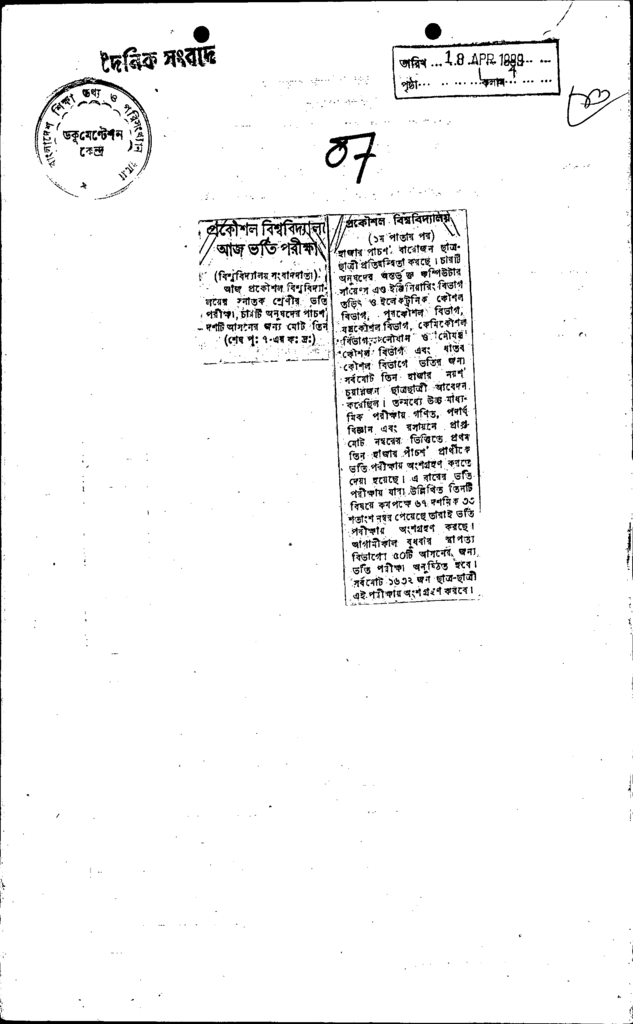 দৈনিক সংবাদ
তারিখ ... 18 APR 1989
পৃষ্ঠা ... কলাম ... 
বাংলাদেশ শিক্ষা তথ্য ও পরিসংখ্যান ব্যুরো
ডকুমেন্টেশন
কেন্দ্র
87
প্রকৌশল বিশ্ববিদ্যালয়ে
আজ ভর্তি পরীক্ষা
(বিশ্ববিদ্যালয় সংবাদদাতা)
আজ প্রকৌশল বিশ্ববিদ্যা-
লয়ের স্নাতক শ্রেণীর ভর্তি
পরীক্ষা, চারটি অনুষদের পাচশ'
দশটি আসনের জন্য মোট তিন
(শেষ পৃ: ৭-এর ক: দ্র:)
প্রকৌশল বিশ্ববিদ্যালয়
(১ম পাতার পর)
হাজার পাচশ' বারোজন ছাত্র-
ছাত্রী প্রতিদ্বন্দ্বিতা করছে। চারটি
অনুষদের অন্তর্ভুক্ত কম্পিউটার
সায়েন্স এণ্ড ইঞ্জিনিয়ারিং বিভাগ
তড়িৎ ও ইলেকট্রনিক কৌশল
বিভাগ, পুরকৌশল বিভাগ,
যন্ত্রকৌশল বিভাগ, কেমিকৌশল
বিভাগ, নৌযান ও নৌযন্ত্র
কৌশল বিভাগ এবং ধাতব
কৌশল বিভাগে ভর্তির জন্য
সর্বমোট তিন হাজার নয়শ'
চুয়ান্নজন ছাত্রছাত্রী আবেদন
করেছিল। তন্মধ্যে উচ্চ মাধ্য-
মিক পরীক্ষায় গণিত, পদার্থ
বিজ্ঞান এবং রসায়নে প্রাপ্ত
মোট নম্বরের ভিত্তিতে প্রথম
তিন হাজার পাঁচশ' প্রার্থীকে
ভর্তি পরীক্ষায় অংশগ্রহণ করতে
দেয়া হয়েছে। এ বারের ভর্তি
পরীক্ষায় যারা উল্লিখিত তিনটি
বিষয়ে কমপক্ষে ৬৭ দশমিক ৩৩
শতাংশ নম্বর পেয়েছে তারাই ভর্তি
পরীক্ষায় অংশগ্রহণ করছে।
আগামীকাল বুধবার স্থাপত্য
বিভাগে ৫০টি আসনের জন্য
ভর্তি পরীক্ষা অনুষ্ঠিত হবে।
সর্বমোট ১৬৩২ জন ছাত্র-ছাত্রী
এই পরীক্ষায় অংশগ্রহণ করবে।